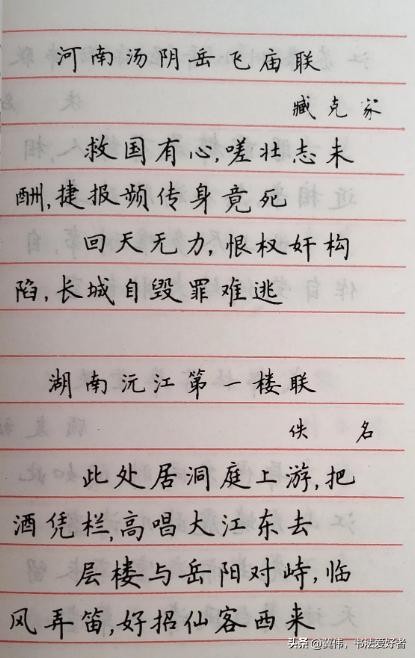 河南汤阴岳飞庙联
臧克家
救国有心,嗟壮志未
酬,捷报频传身竟死
回天无力,恨权奸构
陷,长城自毁罪难逃
湖南沅江第一楼联
佚名
此处居洞庭上游,把
酒凭栏,高唱大江东去
层楼与岳阳对峙,临
风弄笛,好招仙客西来
头条@翼伟,书法爱好者